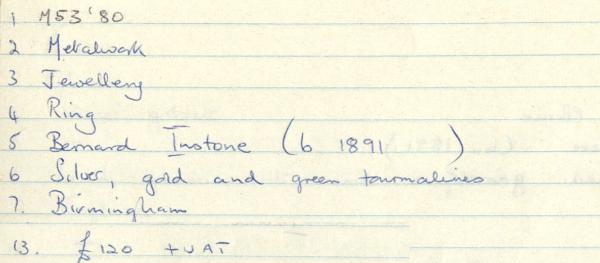 1 M53'80
2 Metalwork
3 Jewellery
4 Ring
5 Bernard Instone (b 1891 )
6 Silver, gold and green tourmalines
7. Birmingham
13. £120 + VAT